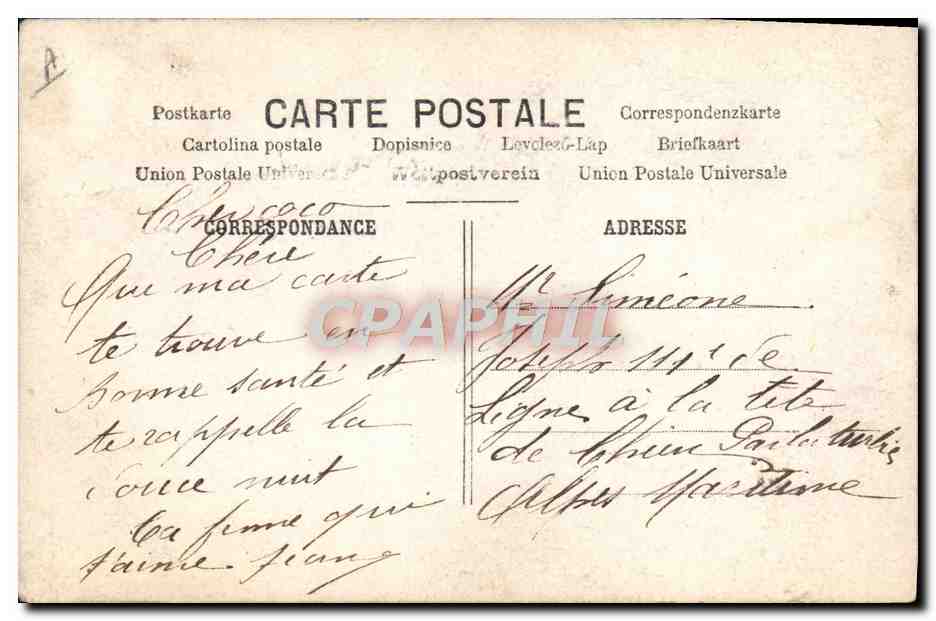 A
Postkarte CARTE POSTALE Correspondenzkarte
Cartolina postale Dopisnice Levelező-Lap Briefkaart
Union Postale Univer postverein Union Postale Universale
CORRESPONDANCE
Cher coco
Chéri
Que ma carte
te trouve en
bonne santé et
te rappelle la
douce nuit
Ta femme qui
t'aime
ADRESSE
Mr Siméone
Joseph 111e de
Ligne à la tete
de Chien Par la turbie
Alpes Maritime
CPAPHIL